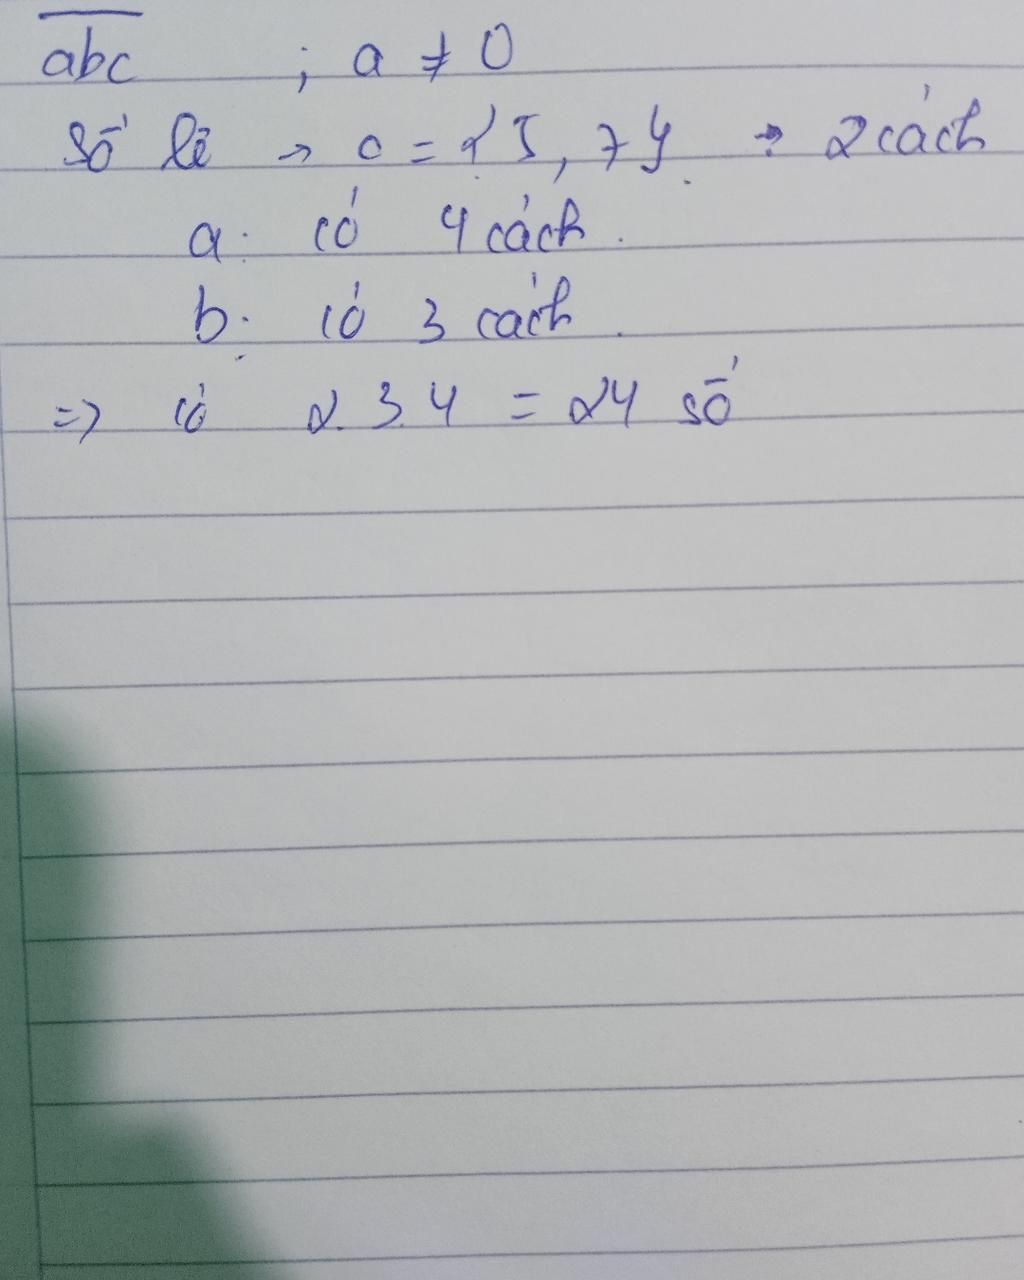 abc ; a ≠ 0
Số lẻ → c = {5, 7} → 2 cách
a: có 4 cách.
b: có 3 cách.
=> có 2.3.4 = 24 số